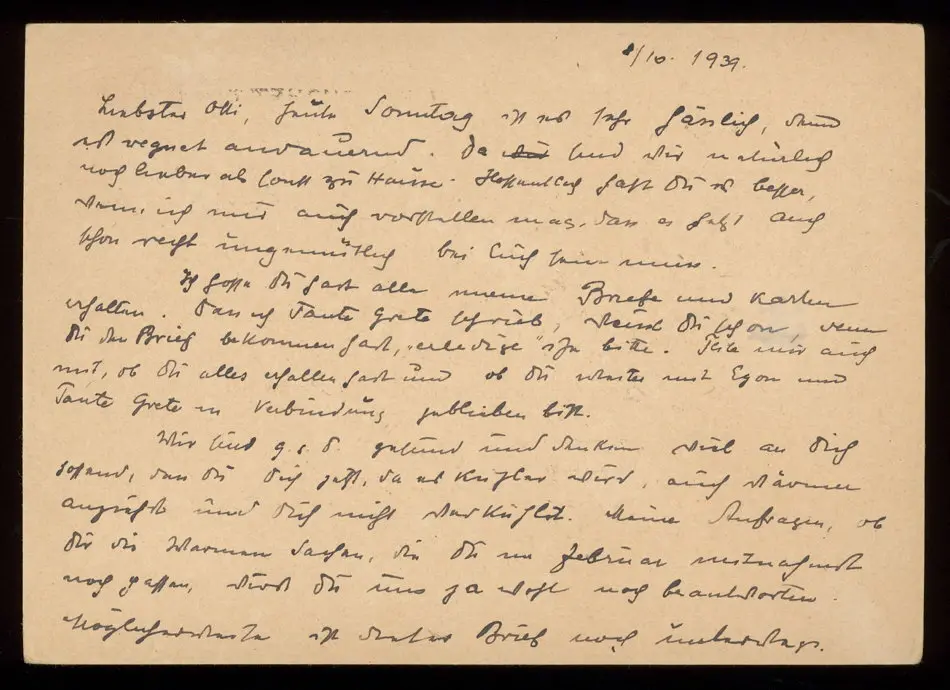 8/10. 1939.
Liebster Otti, heute Sonntag ist es sehr hässlich, denn
es regnet andauernd. Da sind wir natürlich
noch lieber als sonst zu Hause. Hoffentlich hast Du es besser,
wenn ich mir auch vorstellen mag, dass es jetzt auch
schon recht ungemütlich bei Euch sein muss.
Ich hoffe Du hast alle meine Briefe und Karten
erhalten. Dass ich Tante Grete schrieb, weisst Du schon, wenn
Du den Brief bekommen hast, "erledige" ihn bitte. Teile mir auch
mit, ob Du alles erhalten hast und ob Du weiter mit Egon und
Tante Grete in Verbindung geblieben bist.
Wir sind g. s. d. gesund und denken viel an Dich
hoffend, dass Du Dich jetzt, da es kühler wird, auch wärmer
anziehst und Dich nicht verkühlst. Meine Anfragen, ob
Dir die warmen Sachen, die Du im Februar mitnahmst
noch passen, wirst Du uns ja wohl noch beantworten.
Möglicherweise ist dieser Brief noch unterwegs.